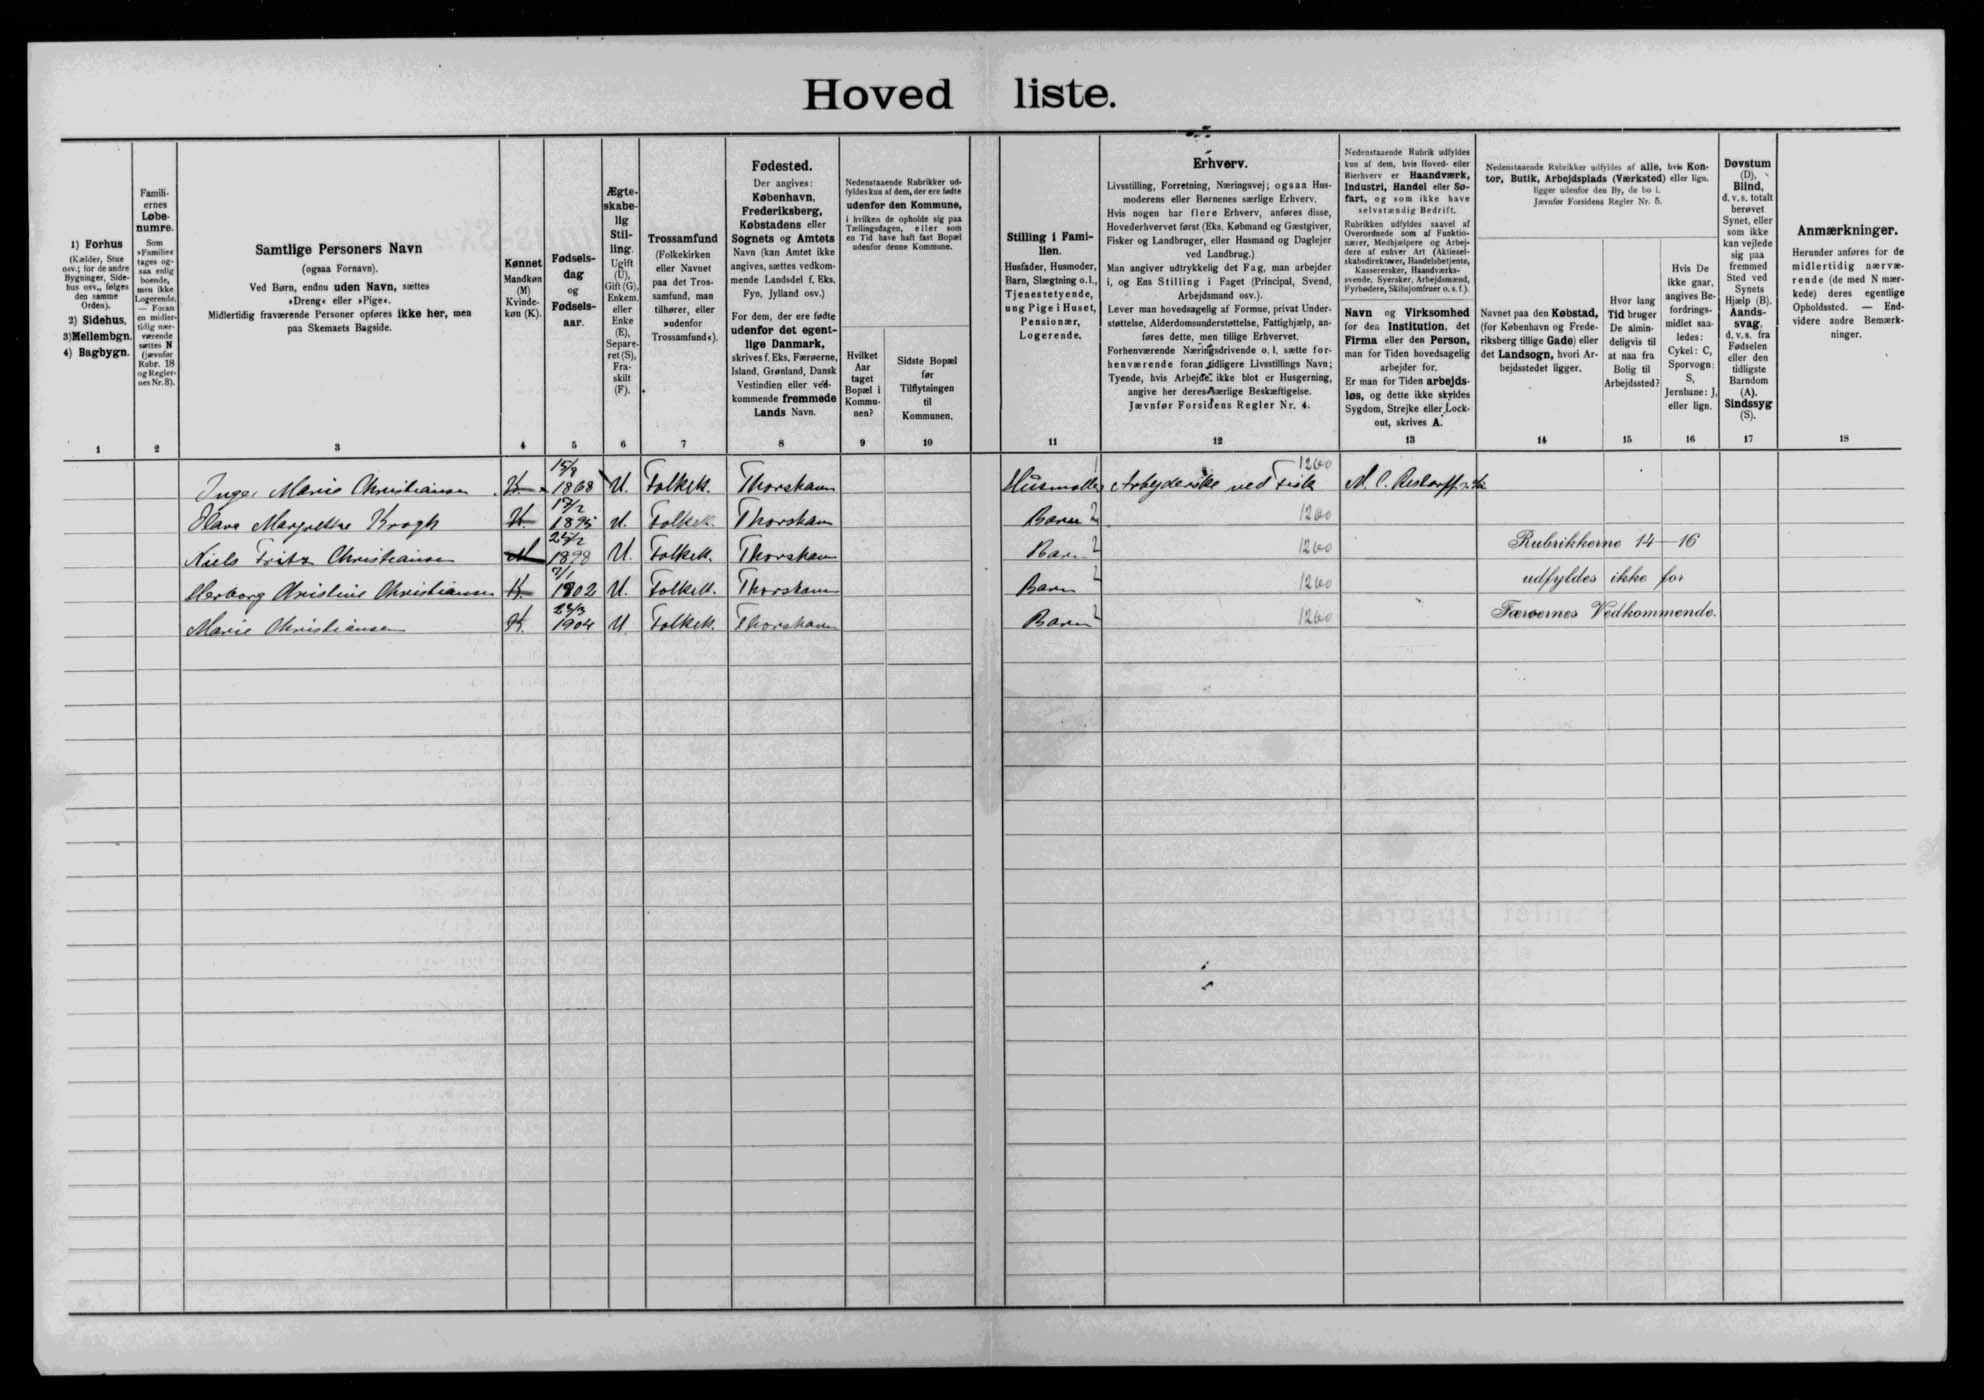 Hoved liste.
1) Forhus
(Kælder, Stue
osv.; for de andre
Bygninger, Side-
hus osv., følges
den samme
Orden).
2) Sidehus,
3) Mellembgn.
4) Bagbygn.
1
Famili-
ernes
Løbe-
numre.
Som
»Familie«
tages og-
saa enlig
boende,
men ikke
Logerende.
— Foran
en midler-
tidig nær-
værende
sættes N
(jævnfør
Rubr. 18
og Regler-
nes Nr. 8).
2
Samtlige Personers Navn
(ogsaa Fornavn).
Ved Børn, endnu uden Navn, sættes
»Dreng« eller »Pige«.
Midlertidig fraværende Personer opføres ikke her, men
paa Skemaets Bagside.
3
Kønnet
Mandkøn
(M)
Kvinde-
køn (K).
4
Fødsels-
dag
og
Fødsels-
aar.
5
Ægte-
skabe-
lig
Stil-
ling.
Ugift
(U),
Gift (G),
Enkem.
eller
Enke
(E),
Separe-
ret (S),
Fra-
skilt
(F).
6
Trossamfund
(Folkekirken
eller Navnet
paa det Tros-
samfund, man
tilhører, eller
»udenfor
Trossamfund«).
7
Fødested.
Der angives:
København,
Frederiksberg,
Købstadens eller
Sognets og Amtets
Navn (kan Amtet ikke
angives, sættes vedkom-
mende Landsdel f. Eks.
Fyn, Jylland osv.)
For dem, der ere fødte
udenfor det egent-
lige Danmark,
skrives f. Eks. Færøerne,
Island, Grønland, Dansk
Vestindien eller ved-
kommende fremmede
Lands Navn.
8
Nedenstaaende Rubrikker ud-
fyldes kun af dem, der ere fødte
udenfor den Kommune,
i hvilken de opholde sig paa
Tællingsdagen, eller som
en Tid have haft fast Bopæl
udenfor denne Kommune.
Hvilket
Aar
taget
Bopæl i
Kommu-
nen?
9
Sidste Bopæl
før
Tilflytningen
til
Kommunen.
10
Stilling i Fami-
lien.
Husfader, Husmoder,
Barn, Slægtning o. l.,
Tjenestetyende,
ung Pige i Huset,
Pensionær,
Logerende.
11
Erhverv.
Livsstilling, Forretning, Næringsvej; ogsaa Hus-
moderens eller Børnenes særlige Erhverv.
Hvis nogen har flere Erhverv, anføres disse,
Hovederhvervet først (Eks. Købmand og Gæstgiver,
Fisker og Landbruger, eller Husmand og Daglejer
ved Landbrug.)
Man angiver udtrykkelig det Fag, man arbejder
i, og Ens Stilling i Faget (Principal, Svend,
Arbejdsmand osv.).
Lever man hovedsagelig af Formue, privat Under-
støttelse, Alderdomsunderstøttelse, Fattighjælp, an-
føres dette, men tillige Erhvervet.
Forhenværende Næringsdrivende o. l. sætte for-
henværende foran tidligere Livsstillings Navn;
Tyende, hvis Arbejde ikke blot er Husgerning,
angive her deres særlige Beskæftigelse.
Jævnfør Forsidens Regler Nr. 4.
12
Nedenstaaende Rubrik udfyldes
kun af dem, hvis Hoved- eller
Bierhverv er Haandværk,
Industri, Handel eller Sø-
fart, og som ikke have
selvstændig Bedrift.
Rubrikken udfyldes saavel af
Overordnede som af Funktio-
nærer, Medhjælpere og Arbej-
dere af enhver Art (Aktiesel-
skabsdirektører, Handelsbetjente,
Kasserersker, Haandværks-
svende, Syersker, Arbejdsmænd,
Fyrbødere, Skibsjomfruer o. s. f.).
Navn og Virksomhed
for den Institution, det
Firma eller den Person,
man for Tiden hovedsagelig
arbejder for.
Er man for Tiden arbejds-
løs, og dette ikke skyldes
Sygdom, Strejke eller Lock-
out, skrives A.
13
Nedenstaaende Rubrikker udfyldes af alle, hvis Kon-
tor, Butik, Arbejdsplads (Værksted) eller lign.
ligger udenfor den By, de bo i.
Jævnfør Forsidens Regler Nr. 5.
Navnet paa den Købstad,
(for København og Frede-
riksberg tillige Gade) eller
det Landsogn, hvori Ar-
bejdsstedet ligger.
14
Hvor lang
Tid bruger
De almin-
deligvis til
at naa fra
Bolig til
Arbejdssted?
15
Hvis De
ikke gaar,
angives Be-
fordrings-
midlet saa-
ledes:
Cykel: C,
Sporvogn:
S,
Jernbane: J,
eller lign.
16
Døvstum
(D),
Blind,
d. v. s. totalt
berøvet
Synet, eller
som ikke
kan vejlede
sig paa
fremmed
Sted ved
Synets
Hjælp (B).
Aands-
svag,
d. v. s. fra
Fødselen
eller den
tidligste
Barndom
(A).
Sindssyg
(S).
17
Anmærkninger.
Herunder anføres for de
midlertidig nærvæ-
rende (de med N mær-
kede) deres egentlige
Opholdssted. — End-
videre andre Bemærk-
ninger.
18
Inger Marie Christiansen K 15/9 1868 U. Folkek. Thorshavn Husmoder 1 Arbejderske ved Fisk 1200 M. C. Restorff
Margrethe Krogh K. 17/2 1895 U. Folkek. Thorshavn Barn 2 1200
Niels Fritz Christiansen M 25/2 1898 U. Folkek. Thorshavn Barn 2 1200 Rubrikkerne 14-16
Herborg Christine Christiansen K. 7/1 1902 U. Folkek. Thorshavn Barn 2 1200 udfyldes ikke for
Marie Christiansen K. 1904 U. Folkek. Thorshavn Barn 2 1200 Færøernes Vedkommende.